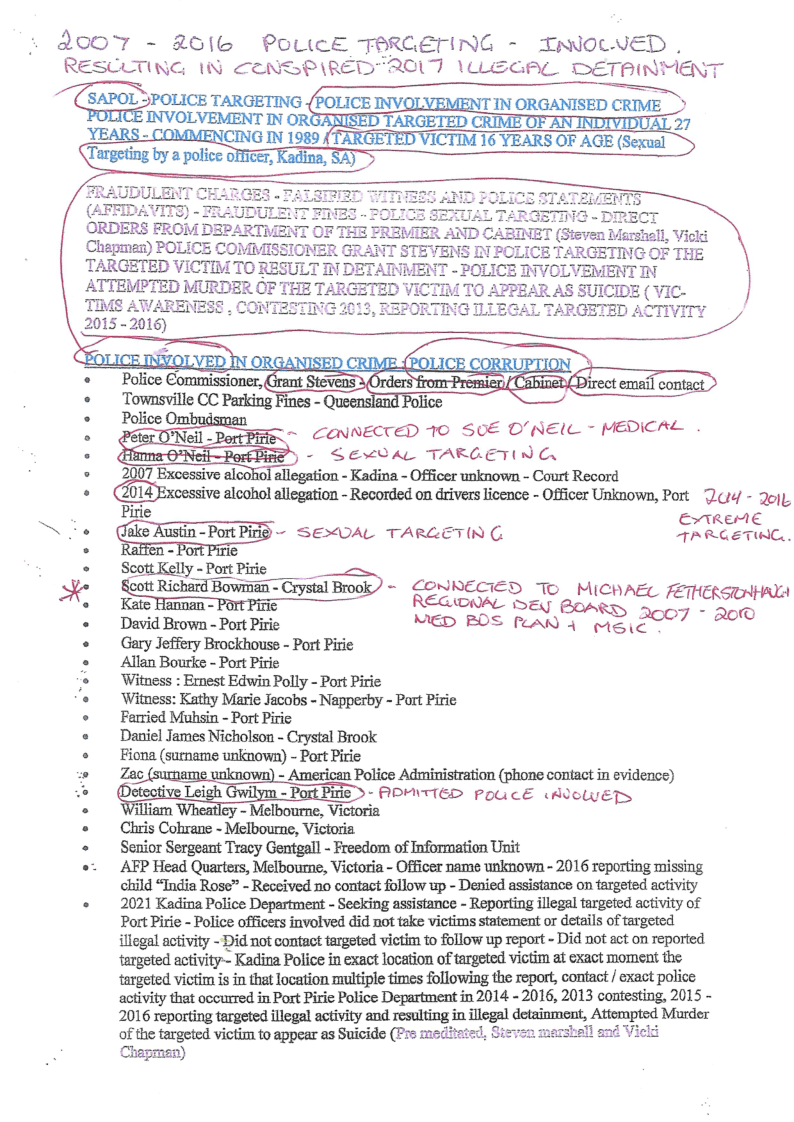 2007 - 2016 POLICE TARGETING - INVOLVED.
RESULTING IN CONSPIRED 2017 ILLEGAL DETAINMENT
SAPOL - POLICE TARGETING - POLICE INVOLVEMENT IN ORGANISED CRIME
POLICE INVOLVEMENT IN ORGANISED TARGETED CRIME OF AN INDIVIDUAL 27
YEARS - COMMENCING IN 1989 / TARGETED VICTIM 16 YEARS OF AGE (Sexual
Targeting by a police officer, Kadina, SA)
FRAUDULENT CHARGES - FALSIFIED WITNESS AND POLICE STATEMENTS
(AFFIDAVITS) - FRAUDULENT FINES - POLICE SEXUAL TARGETING - DIRECT
ORDERS FROM DEPARTMENT OF THE PREMIER AND CABINET (Steven Marshall, Vicki
Chapman) POLICE COMMISSIONER GRANT STEVENS IN POLICE TARGETING OF THE
TARGETED VICTIM TO RESULT IN DETAINMENT - POLICE INVOLVEMENT IN
ATTEMPTED MURDER OF THE TARGETED VICTIM TO APPEAR AS SUICIDE ( VIC-
TIMS AWARENESS , CONTESTING 2013, REPORTING ILLEGAL TARGETED ACTIVITY
2015 - 2016)
POLICE INVOLVED IN ORGANISED CRIME : POLICE CORRUPTION
• Police Commissioner, Grant Stevens - Orders from Premier / Cabinet / Direct email contact
• Townsville CC Parking Fines - Queensland Police
• Police Ombudsman
• Peter O'Neil - Port Pirie - CONNECTED TO SUE O'NEIL - MEDICAL .
• Hanna O'Neil - Port Pirie - SEXUAL TARGETING
• 2007 Excessive alcohol allegation - Kadina - Officer unknown - Court Record
• 2014 Excessive alcohol allegation - Recorded on drivers licence - Officer Unknown, Port
Pirie
2014 - 2016
EXTREME
TARGETING.
• Jake Austin - Port Pirie - SEXUAL TARGETING
• Raffen - Port Pirie
• Scott Kelly - Port Pirie
• Scott Richard Bowman - Crystal Brook - CONNECTED TO MICHAEL FETHERSTONHAUGH
REGIONAL DEV BOARD 2007 - 2010
MED BUS PLAN + MSIC .
• Kate Hannan - Port Pirie
• David Brown - Port Pirie
• Gary Jeffery Brockhouse - Port Pirie
• Allan Bourke - Port Pirie
• Witness : Ernest Edwin Polly - Port Pirie
• Witness: Kathy Marie Jacobs - Napperby - Port Pirie
• Farried Muhsin - Port Pirie
• Daniel James Nicholson - Crystal Brook
• Fiona (surname unknown) - Port Pirie
• Zac (surname unknown) - American Police Administration (phone contact in evidence)
• Detective Leigh Gwilym - Port Pirie - ADMITTED POLICE INVOLVED
• William Wheatley - Melbourne, Victoria
• Chris Cohrane - Melbourne, Victoria
• Senior Sergeant Tracy Gentgall - Freedom of Information Unit
• AFP Head Quarters, Melbourne, Victoria - Officer name unknown - 2016 reporting missing
child "India Rose" - Received no contact follow up - Denied assistance on targeted activity
• 2021 Kadina Police Department - Seeking assistance - Reporting illegal targeted activity of
Port Pirie - Police officers involved did not take victims statement or details of targeted
illegal activity - Did not contact targeted victim to follow up report - Did not act on reported
targeted activity - Kadina Police in exact location of targeted victim at exact moment the
targeted victim is in that location multiple times following the report, contact / exact police
activity that occurred in Port Pirie Police Department in 2014 - 2016, 2013 contesting, 2015 -
2016 reporting targeted illegal activity and resulting in illegal detainment, Attempted Murder
of the targeted victim to appear as Suicide (Pre meditated, Steven marshall and Vicki
Chapman)